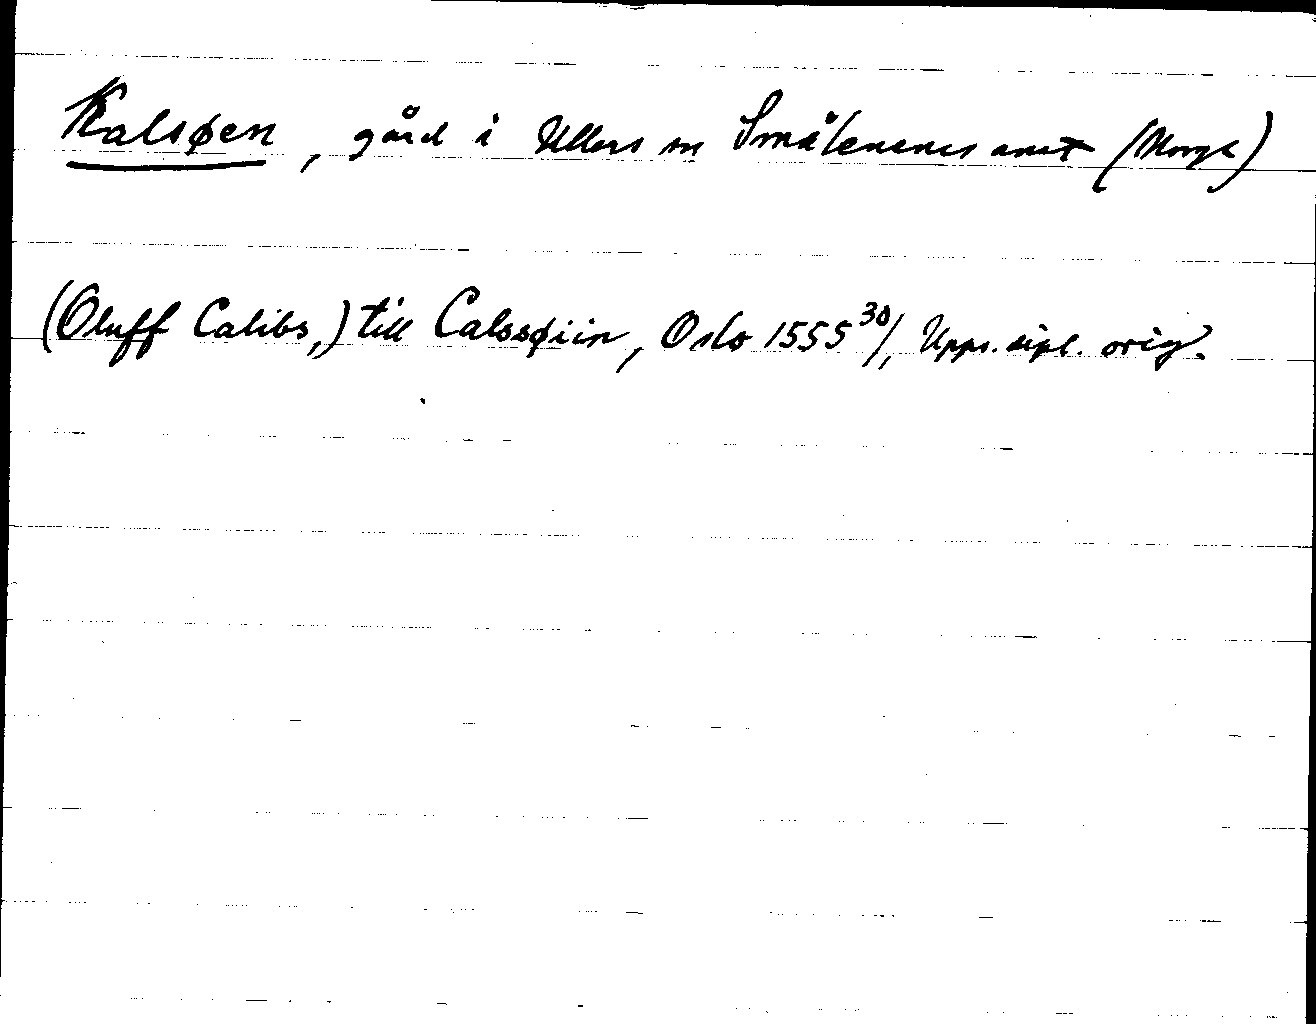 Kalsøen, gård i Ullers sn Smålenenes amt (Norge)
(Oluff Calibs,) till Calssøiin, Oslo 1555 30/1, Upps. dipl. orig.